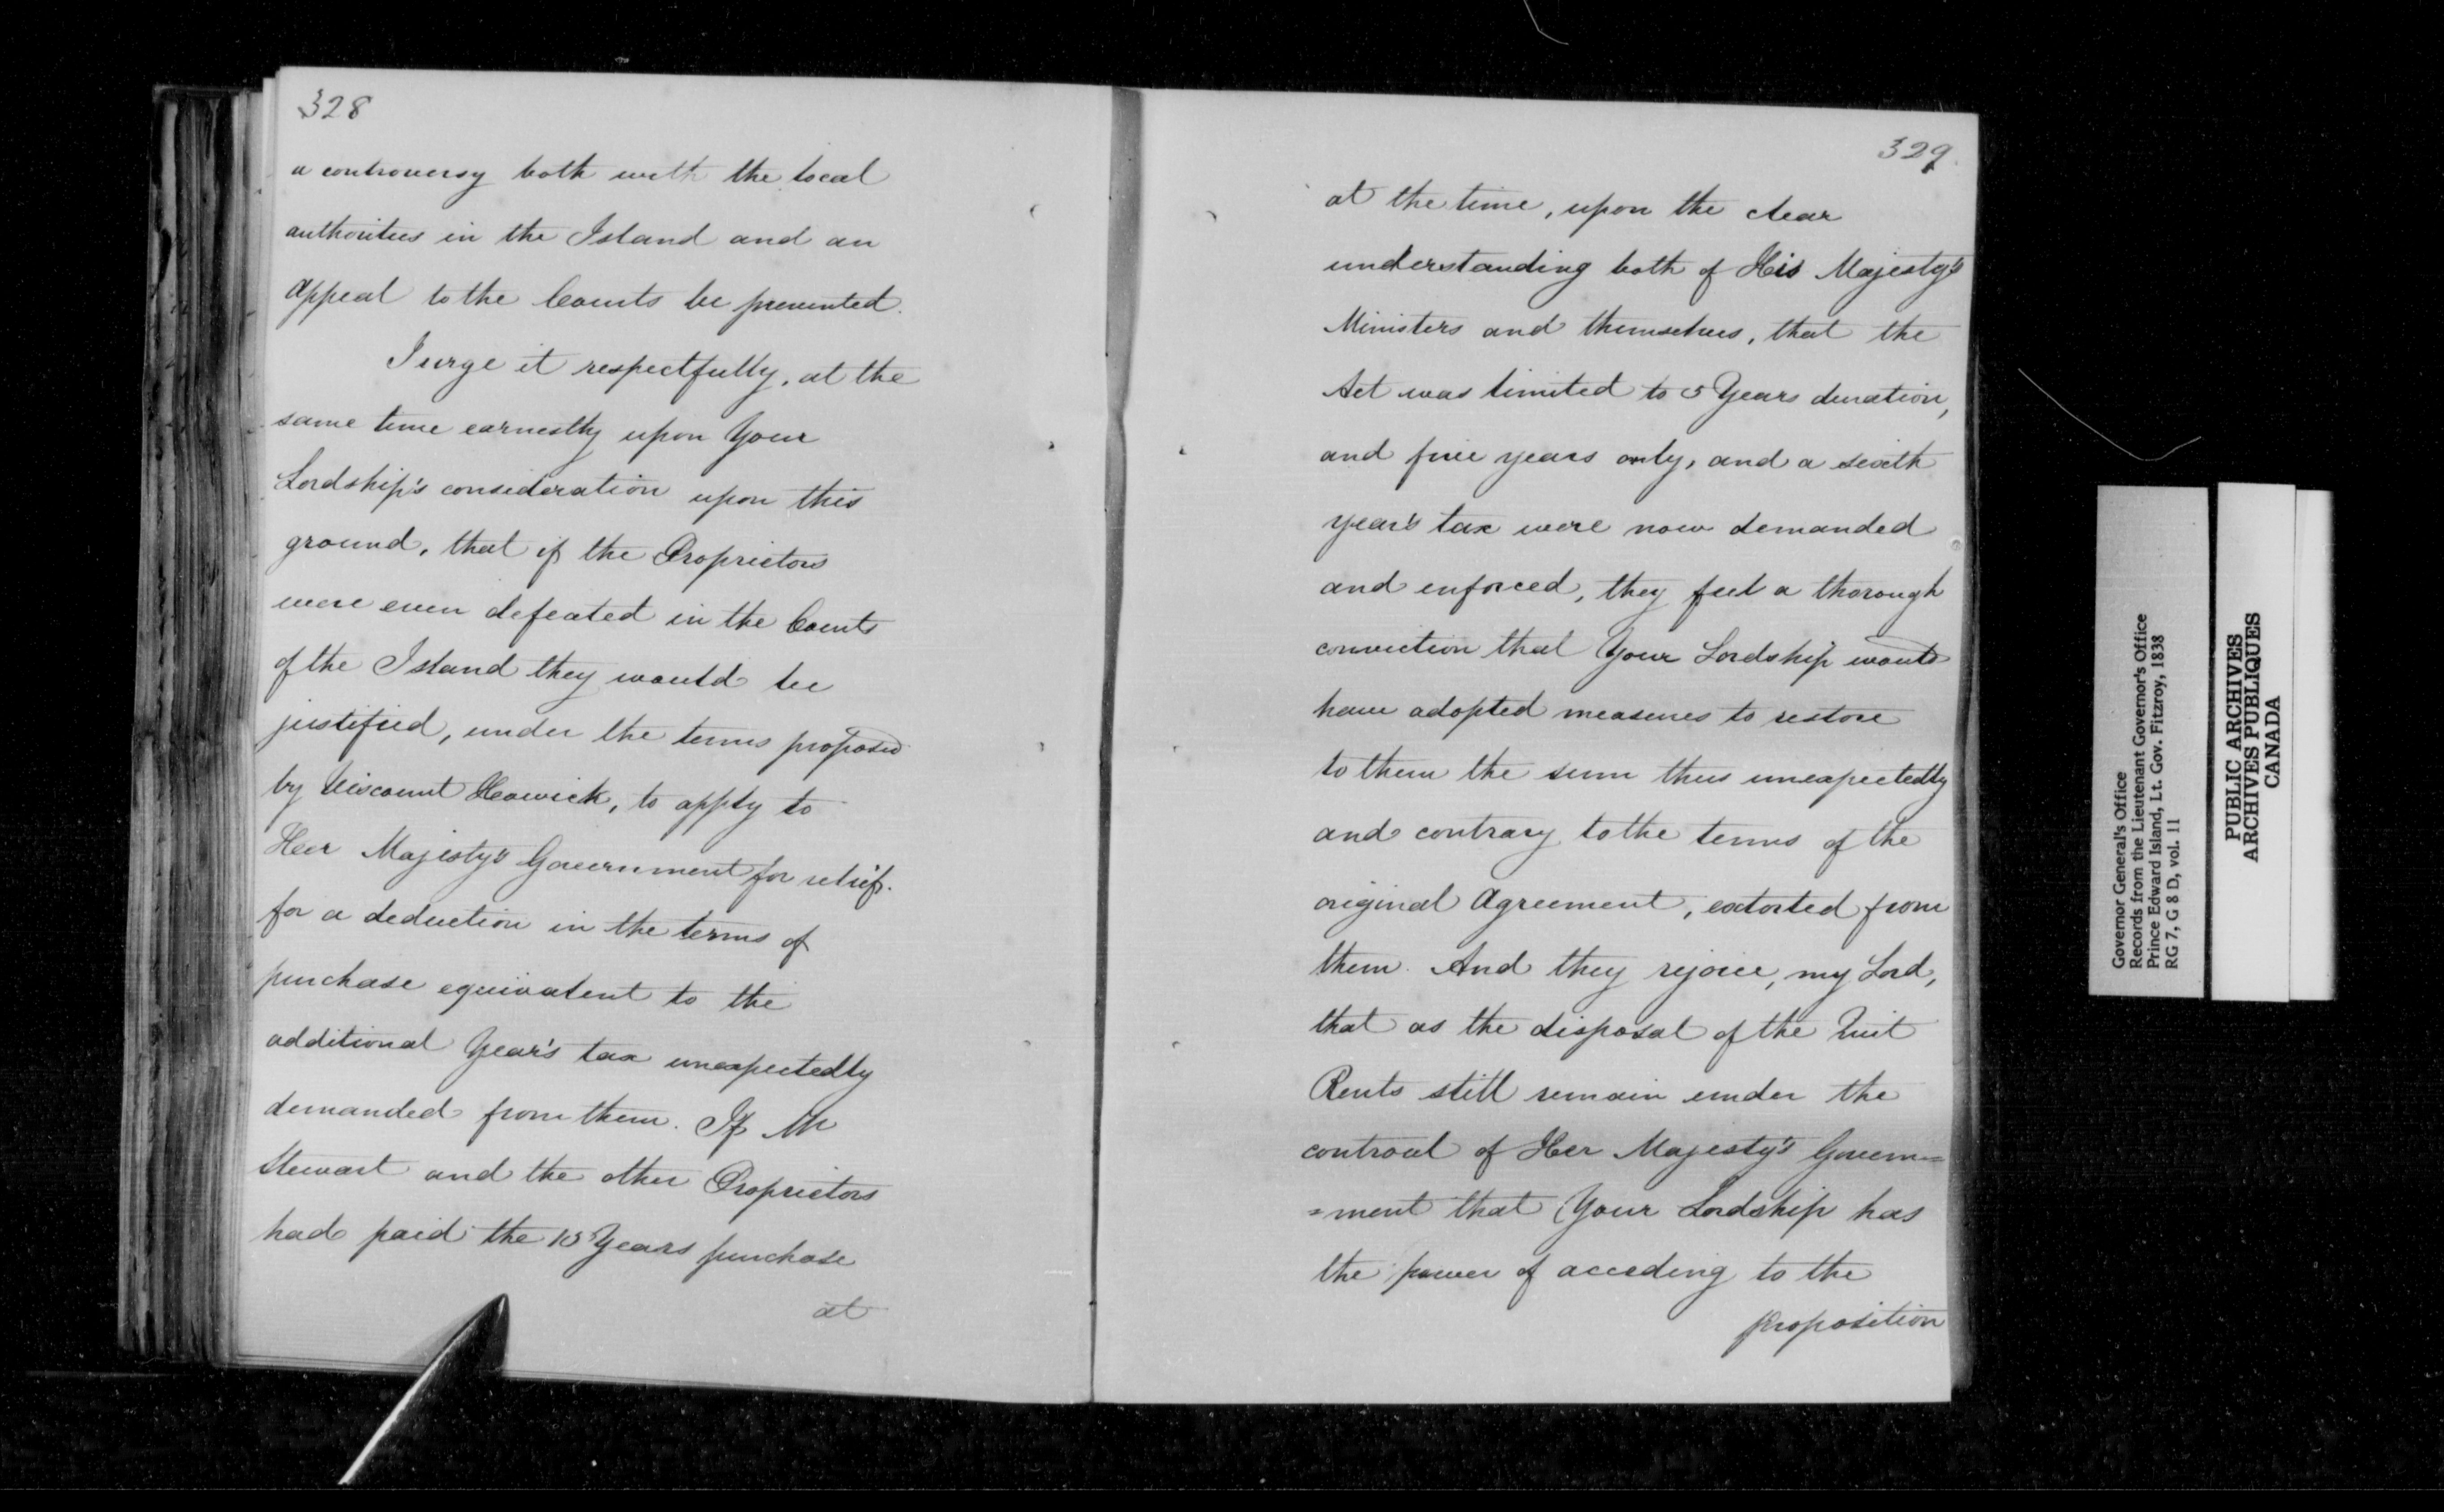 328
a controversy both with the local
authorities in the Island and an
appeal to the Courts be prevented.
I urge it respectfully, at the
same time earnestly upon Your
Lordship's consideration upon this
ground, that if the Proprietors
were even defeated in the Courts
of the Island they would be
justified, under the terms proposed
by Viscount Howick, to apply to
Her Majesty's Government for relief.
for a deduction in the terms of
purchase equivalent to the
additional Year's tax unexpectedly
demanded from them. If Mr
Stewart and the other Proprietors
had paid the 15 Years purchase
at
329.
at the time, upon the clear
understanding both of His Majesty's
Ministers and themselves, that the
Act was limited to 5 Years duration,
and five years only, and a sixth
year's tax were now demanded
and enforced, they feel a thorough
conviction that Your Lordship would
have adopted measures to restore
to them the sum thus unexpectedly
and contrary to the terms of the
original Agreement, extorted from
them. And they rejoice, my Lord,
that as the disposal of the Quit
Rents still remain under the
controul of Her Majesty's Govern=
=ment that Your Lordship has
the power of acceding to the
proposition
Governor General's Office
Records from the Lieutenant Governor's Office
Prince Edward Island, Lt. Gov. Fitzroy, 1838
RG 7, G 8 D, vol. 11
PUBLIC ARCHIVES
ARCHIVES PUBLIQUES
CANADA